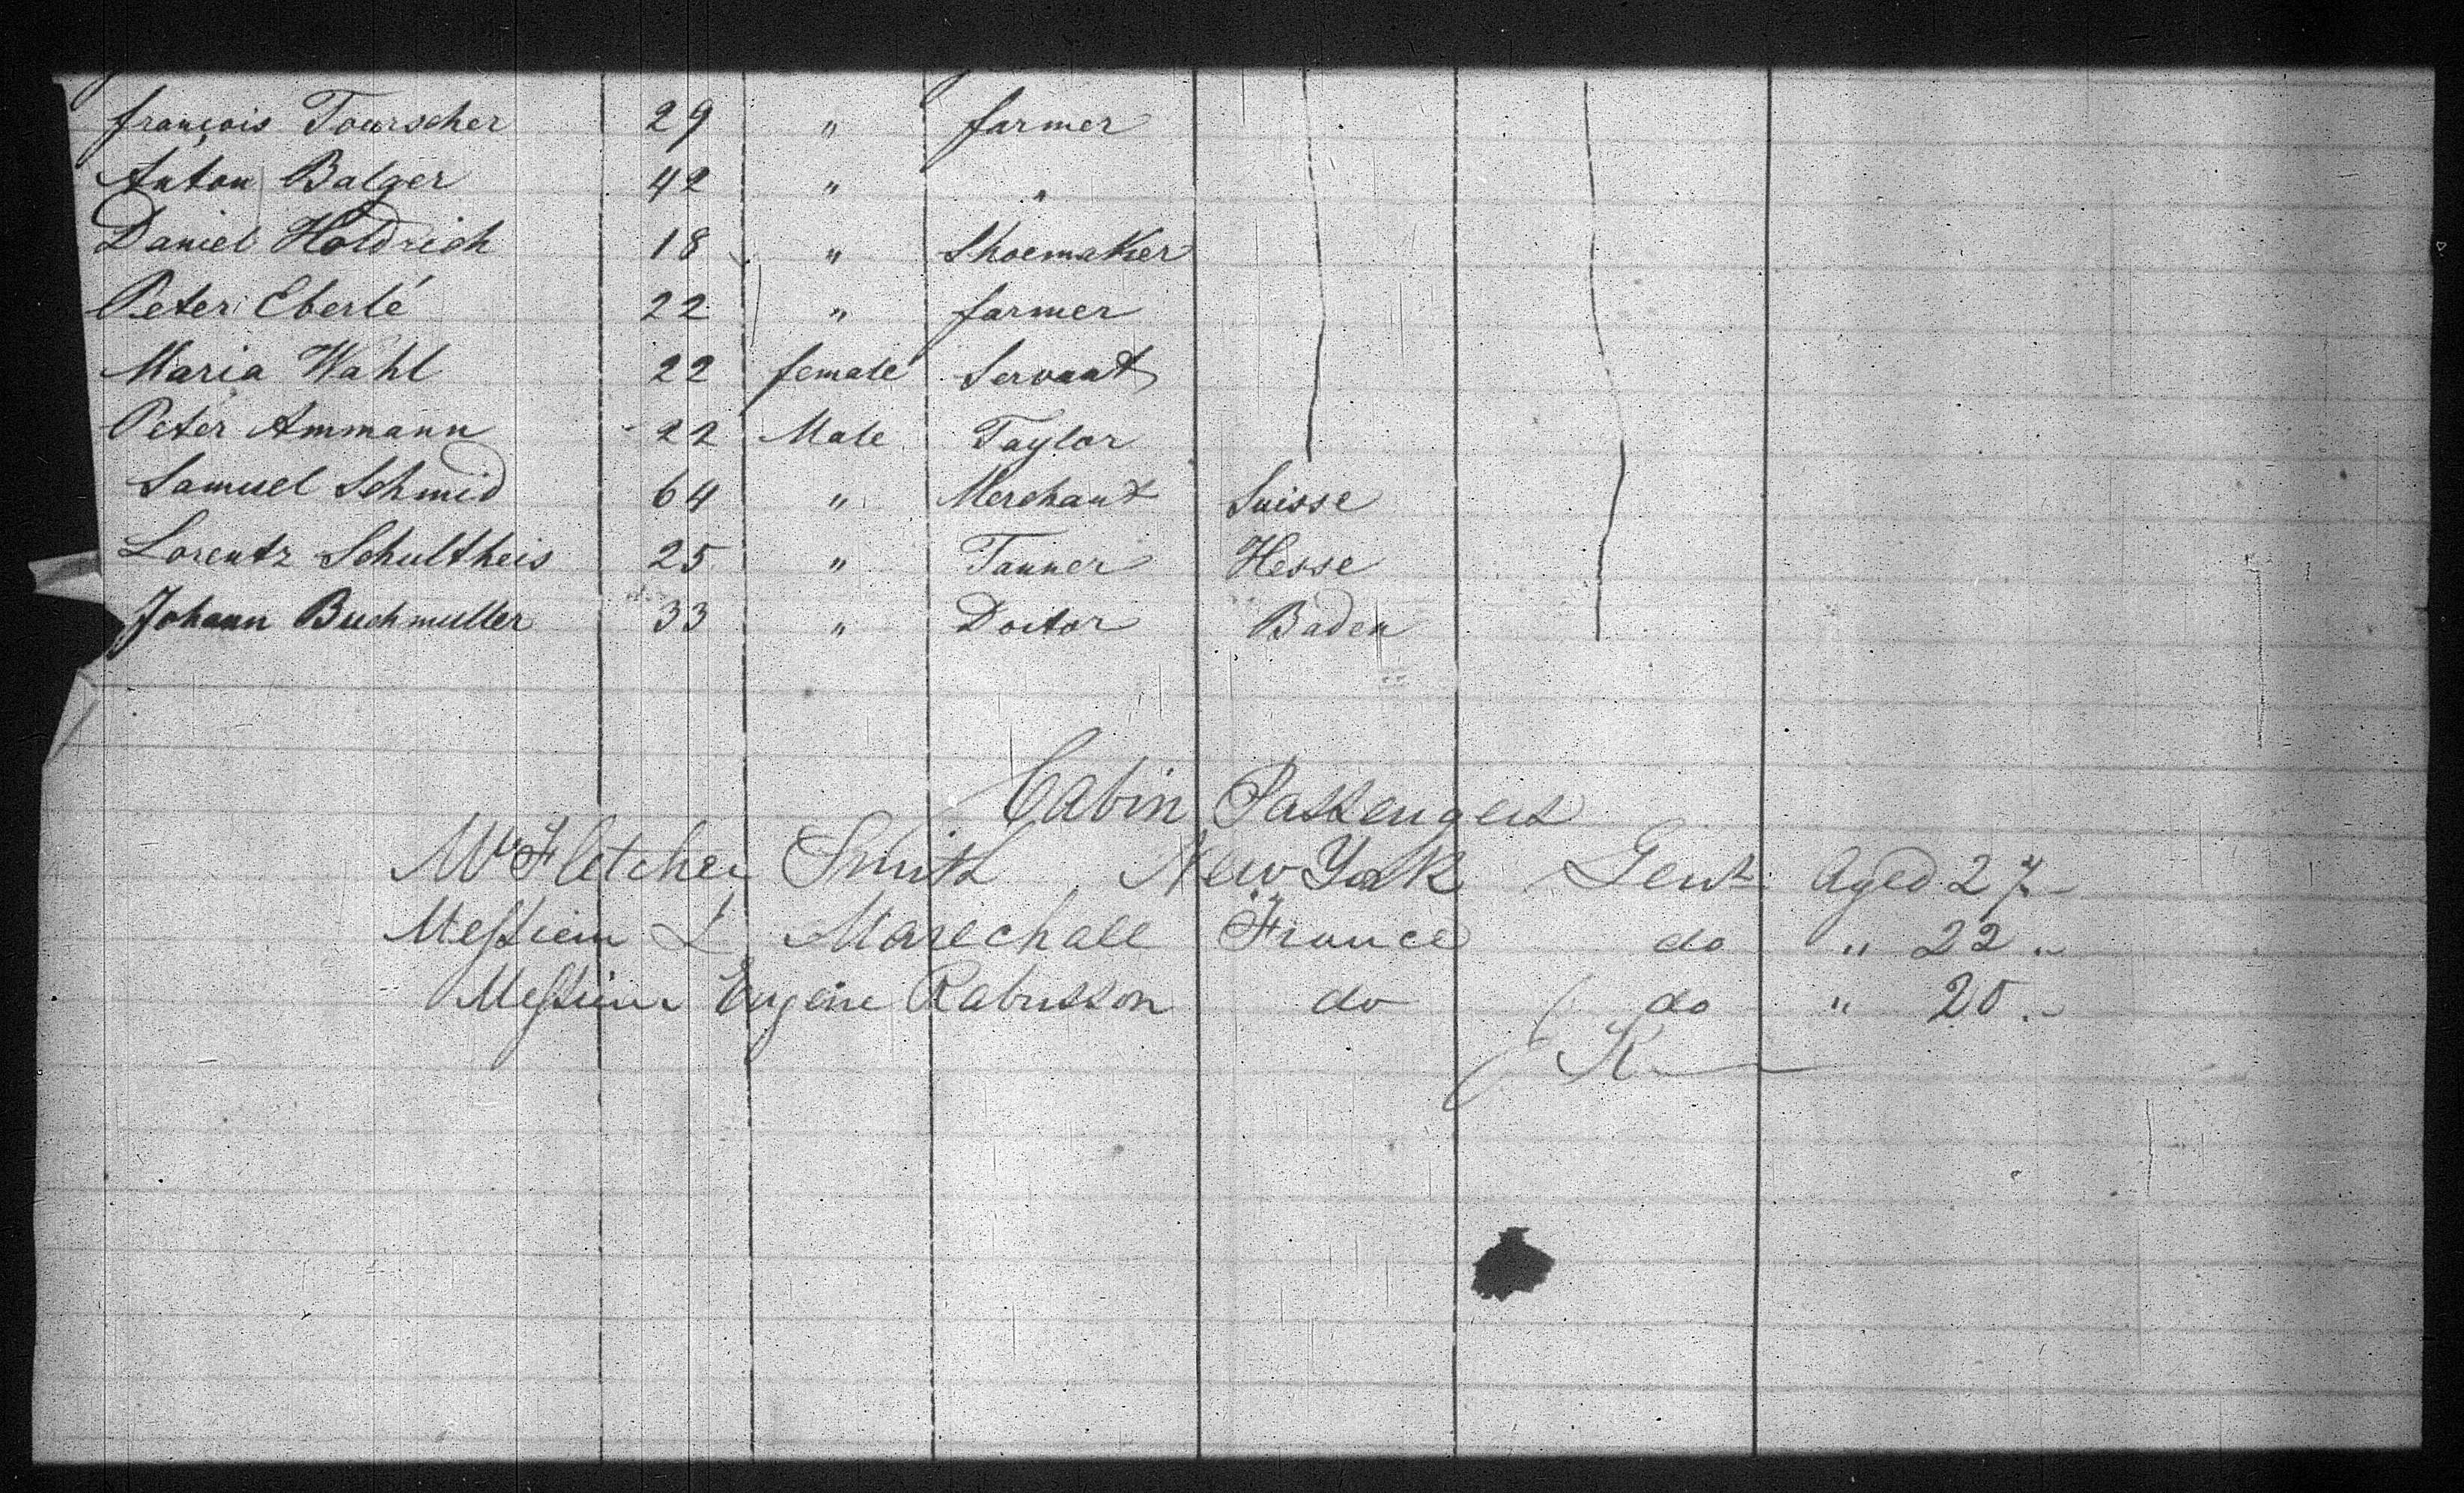 françois Tourscher 29 " farmer
Anton Balger 42 " "
Daniel Holdrich 18 " Shoemaker
Peter Eberlé 22 " farmer
Maria Wahl 22 female Servant
Peter Ammann 22 Male Taylor
Samuel Schmid 64 " Merchant Suisse
Lorentz Schultheis 25 " Tanner Hesse
Johann Buchmuller 33 " Doctor Baden
Cabin Passengers
Mr Fletcher Smith New York Gent Aged 27
Messieur L Marechall France do " 22
Messieur Eugene Rabusson do do " 20